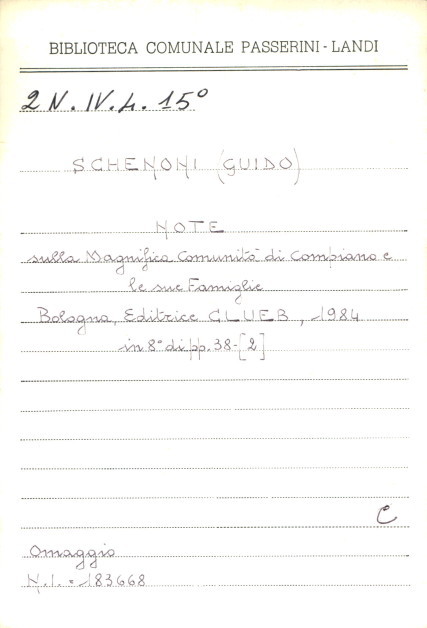 BIBLIOTECA COMUNALE PASSERINI - LANDI
2 N. IV. 4. 15°
SCHENONI (GUIDO)
NOTE
sulla Magnifica Comunità di Compiano e
le sue Famiglie
Bologna, Editrice CLUEB, 1984
in 8° di pp. 38-[2]
C
Omaggio
N.I. = 183668